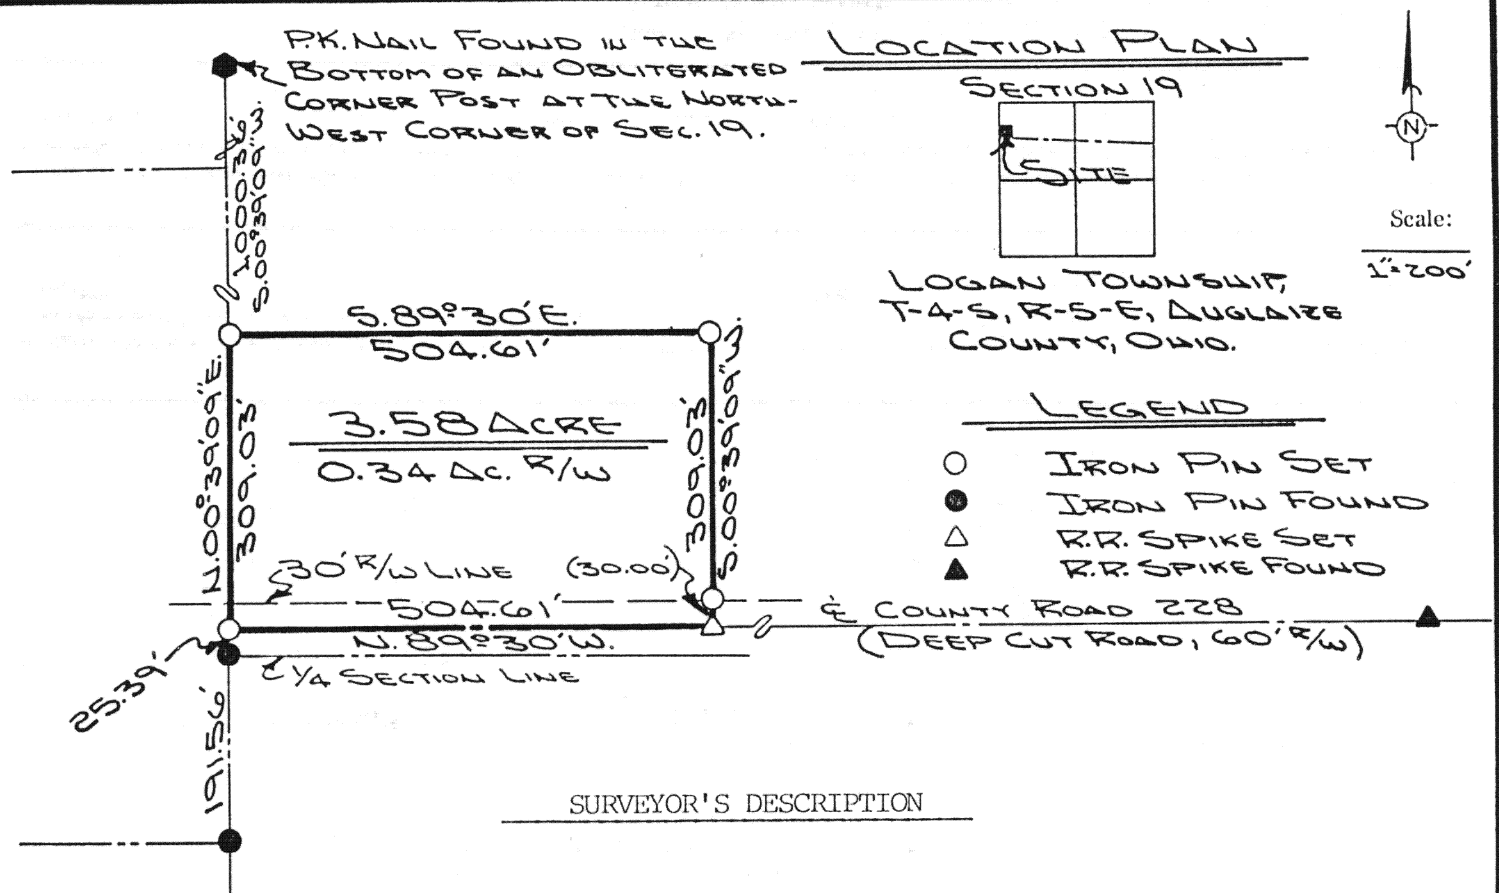 P.K. NAIL FOUND IN THE
BOTTOM OF AN OBLITERATED
CORNER POST AT THE NORTH-
WEST CORNER OF SEC. 19.
LOCATION PLAN
SECTION 19
SITE
LOGAN TOWNSHIP,
T-4-S, R-5-E, AUGLAIZE
COUNTY, OHIO.
N
Scale:
1"=200'
1000.36'
S.00°39'09"W.
S.89°30'E.
504.61'
N.00°39'09"E.
309.03'
3.58 ACRE
0.34 AC. R/W
309.03'
S.00°39'09"W.
LEGEND
IRON PIN SET
IRON PIN FOUND
R.R. SPIKE SET
R.R. SPIKE FOUND
30' R/W LINE
(30.00')
504.61'
N.89°30'W.
℄ COUNTY ROAD 228
(DEEP CUT ROAD, 60' R/W)
1/4 SECTION LINE
25.39'
191.56'
SURVEYOR'S DESCRIPTION